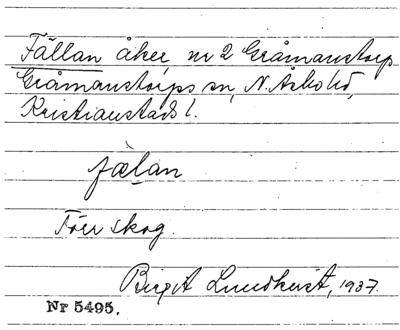 Fällan åker, nr 2 Gråmanstorp
Gråmanstorps sn, N. Asbo hd,
Kristianstads l.
fælan
Förr skog.
Birgit Lundkvist, 1937.
Nr 5495.